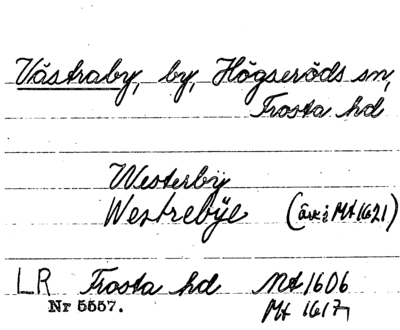 Västraby, by, Högseröds sn,
Frosta hd
Westerby
Westrebÿe (äv. i Mt 1621)
LR Frosta hd Mt 1606
Nr 5557. Mt 1617